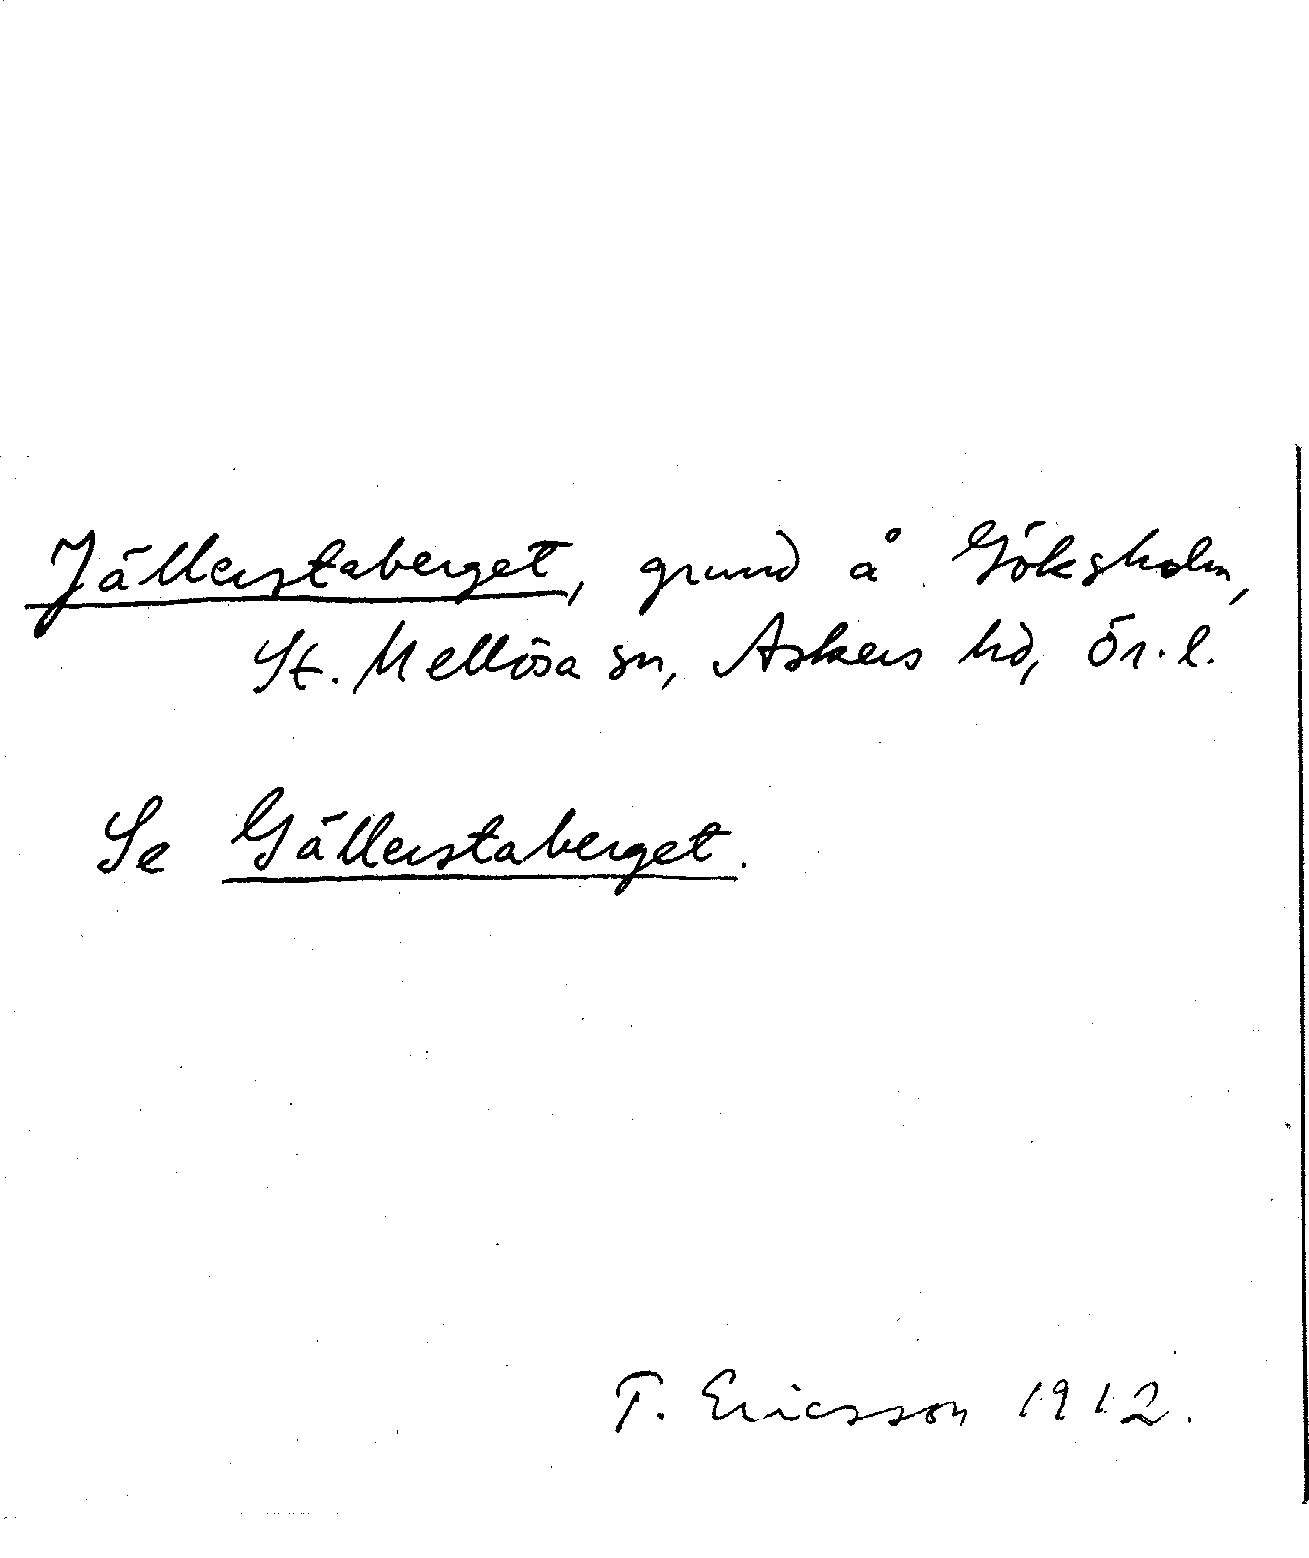 Jällerstaberget, grund å Göksholm,
St. Mellösa sn, Askers hd, Ör. l.
Se Gällerstaberget.
T. Ericsson 1912.